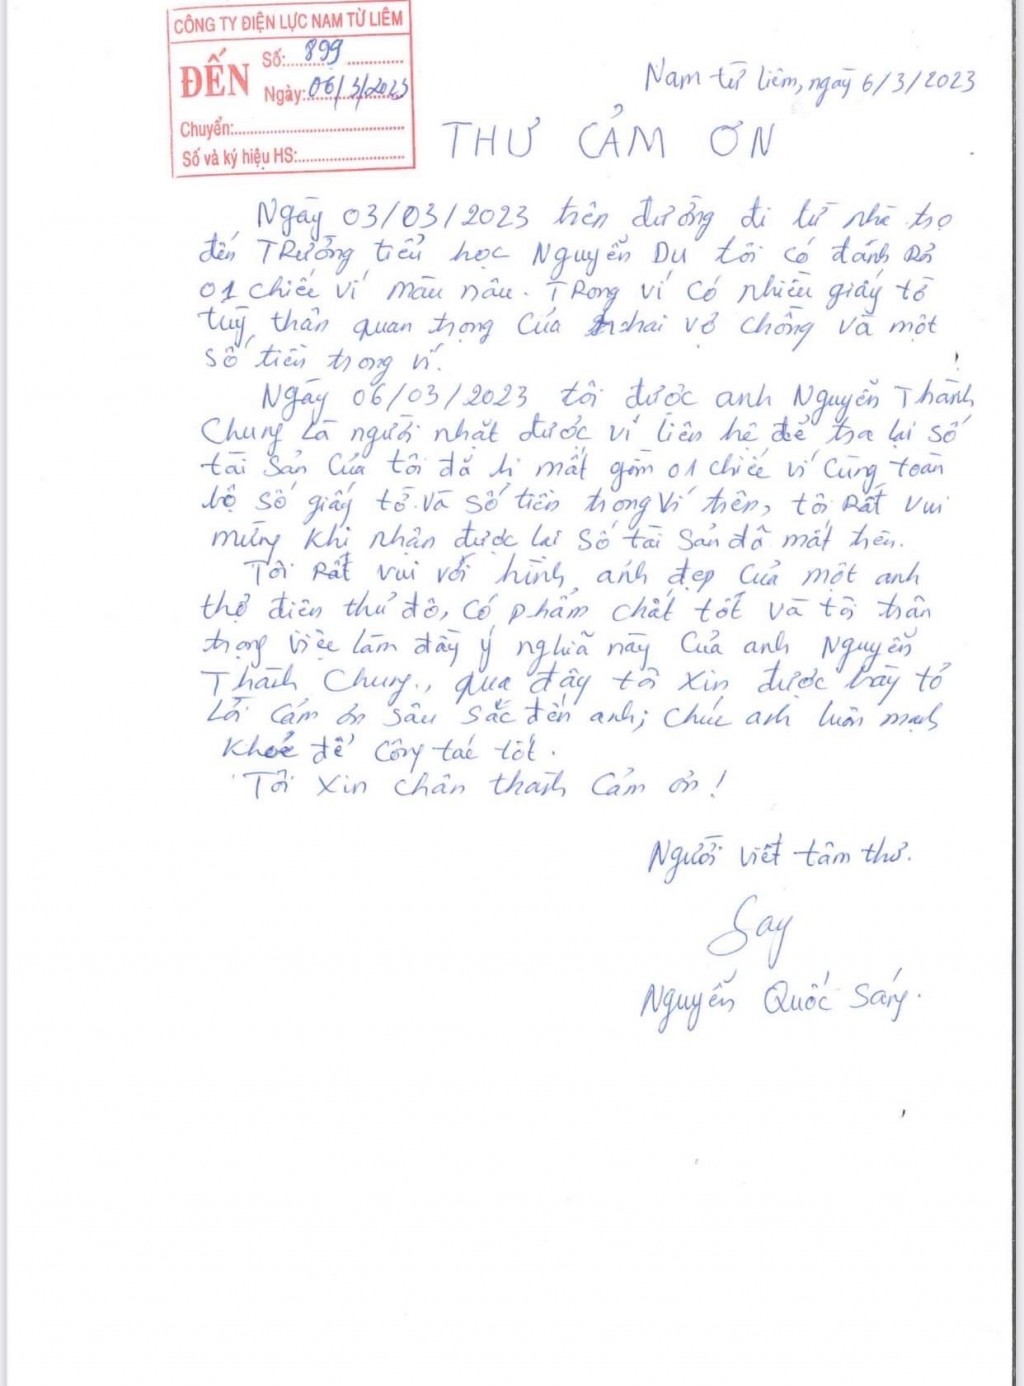 CÔNG TY ĐIỆN LỰC NAM TỪ LIÊM
ĐẾN
Số: 899
Ngày: 06/3/2023
Chuyển:
Số và ký hiệu HS:
Nam từ liêm, ngày 6/3/2023
THƯ CẢM ƠN
Ngày 03/03/2023 trên đường đi từ nhà trọ
đến TRường tiểu học Nguyễn Du tôi có đánh Rơi
01 chiếc ví màu nâu. TRong ví có nhiều giấy tờ
tuỳ thân quan trọng Của hai vợ chồng và một
số tiền trong ví.
Ngày 06/03/2023 tôi được anh Nguyễn Thành
Chung Là người nhặt được ví liên hệ để trả lại số
tài sản Của tôi đã bị mất gồm 01 chiếc ví Cùng toàn
bộ số giấy tờ và số tiền trong ví trên, tôi Rất vui
mừng khi nhận được lại số tài sản đã mất trên.
Tôi Rất vui với hình ảnh đẹp Của một anh
thợ điện thủ đô, có phẩm chất tốt và tôi trân
trọng việc làm đầy ý nghĩa này Của anh Nguyễn
Thành Chung., qua đây tôi xin được bày tỏ
Lời cảm ơn sâu sắc đến anh; chúc anh luôn mạnh
khoẻ để Công tác tốt.
Tôi xin chân thành Cảm ơn!
Người viết tâm thư.
Say
Nguyễn Quốc Sáng.